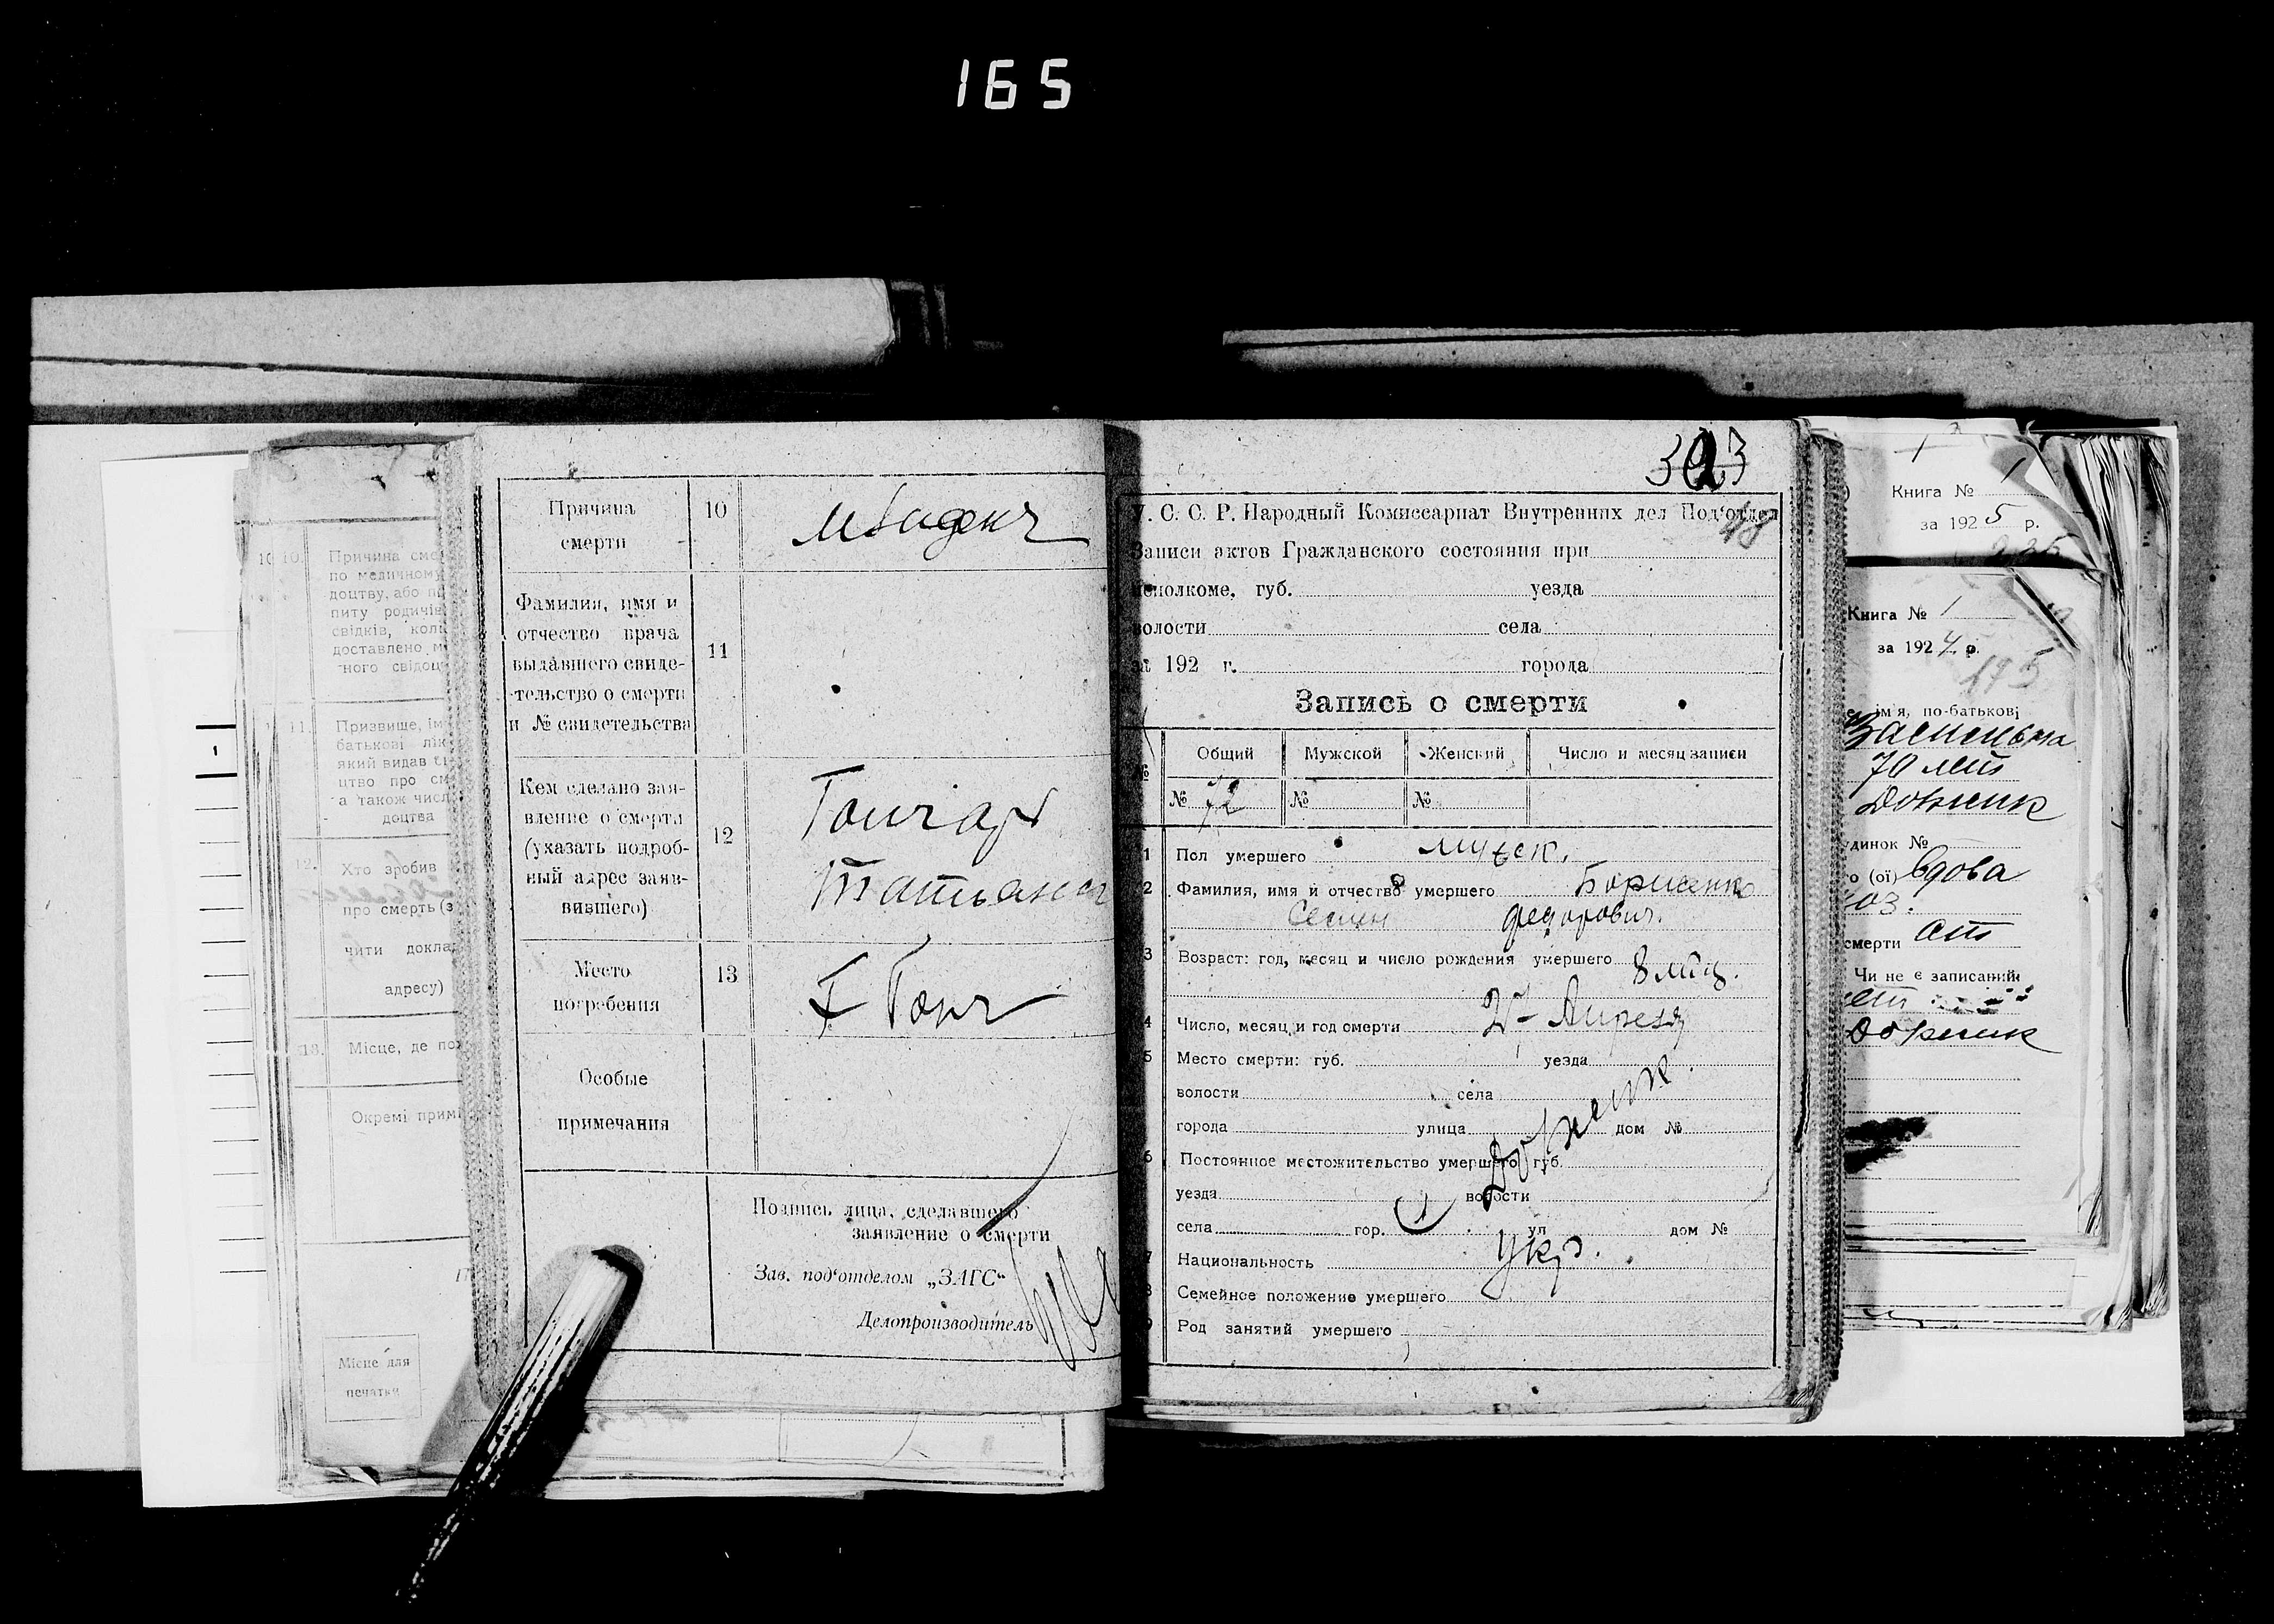 165
10
Причина сме
по медичному
доцтву, або п
питу родичів
свідків, кол
доставлено м
ного свідоц
11.
Призвище, ім
батькові лік
який видав
цтво про см
а також числ
доцтва
12.
Хто зробив
про смерть (з
чити докла
адресу)
13.
Місце, де по
Окремі примі
Місце для
печатки
Причина
смерти
10
Фамилия, имя и
отчество врача
выдавшего свиде-
тельство о смерти
и № свидетельства
11
Кем сделано зая-
вление о смерти
(указать подроб-
ный адрес заяв-
вившего)
12
Гончар
Татьяна
Место
погребения
13
Особые
примечания
Подпись лица, сделавшего
заявление о смерти
Зав. под'отделом „ЗАГС“
Делопроизводитель
323
48
У. С. С. Р. Народный Комиссариат Внутренних дел Под'отдел
Записи актов Гражданского состояния при
исполкоме, губ. уезда
волости села
за 192 г. города
Запись о смерти
№ Общий Мужской Женский Число и месяц записи
№ 72 № №
1 Пол умершего мужск.
2 Фамилия, имя и отчество умершего Борисенко
Семен Федорович.
3 Возраст: год, месяц и число рождения умершего 8 мц.
4 Число, месяц и год смерти Апреля
5 Место смерти: губ. уезда
волости села
города улица дом №
6 Постоянное местожительство умершего губ.
уезда волости
села гор. ул. дом №
7 Национальность Укр.
8 Семейное положение умершего
9 Род занятий умершего
Книга № 1
за 1925 р.
Книга № 1
за 1924 р.
195
ім'я, по-батькові
70 лет
динок №
о (ої) вдова
смерти
Чи не є записаний